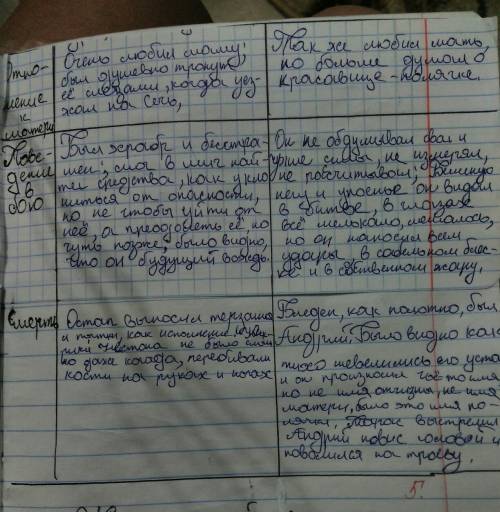 Отно-
шение
к
матери
Очень любил маму;
был душевно тронут
её слезами, когда уез-
жал на Сечь,
Так же любил мать,
но больше думал о
красавице-полячке.
Пове-
дение
в
бою
Был храбр и бесстра-
шен; смог в миг най-
ти средства, как укло
ниться от опасности,
но не чтобы уйти от
неё, а преодолеть её, но
чуть позже, было видно,
что он будущий вождь.
Он не обдумывал свои и
чужие силы, не измерял,
не рассчитывал; Бешеную
негу и упоенье он видел
в битве, в глазах
всё мелькало, мешалось,
но он наносил всем
удары, в сабельном блес-
ке и в собственном жару.
Смерть
Остап выносил терзания
и пытки, как исполин
ни крика ни стона не было слыш
но даже когда, перебивали
кости на руках и ногах
Бледен, как полотно, был
Андрий. Было видно как
тихо шевелились его уста
и он произносил чьё то имя
но не имя отчизны, не имя
матери, было это имя по-
лячки. Тарас выстрелил
Андрий повис головой и
повалился на траву.
5.